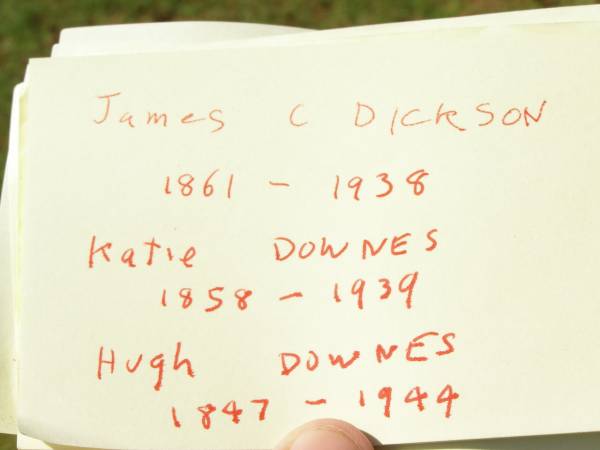 James C DICKSON
1861 - 1938
Katie DOWNES
1858 - 1939
Hugh DOWNES
1847 - 1944